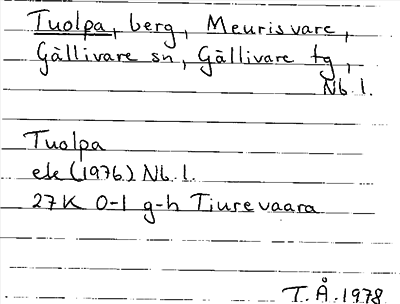 Tuolpa, berg, Meurisvare,
Gällivare sn, Gällivare tg,
Nb. l.
Tuolpa
ek (1976) Nb. l.
27K 0-1 g-h Tiurevaara
T.Å. 1978